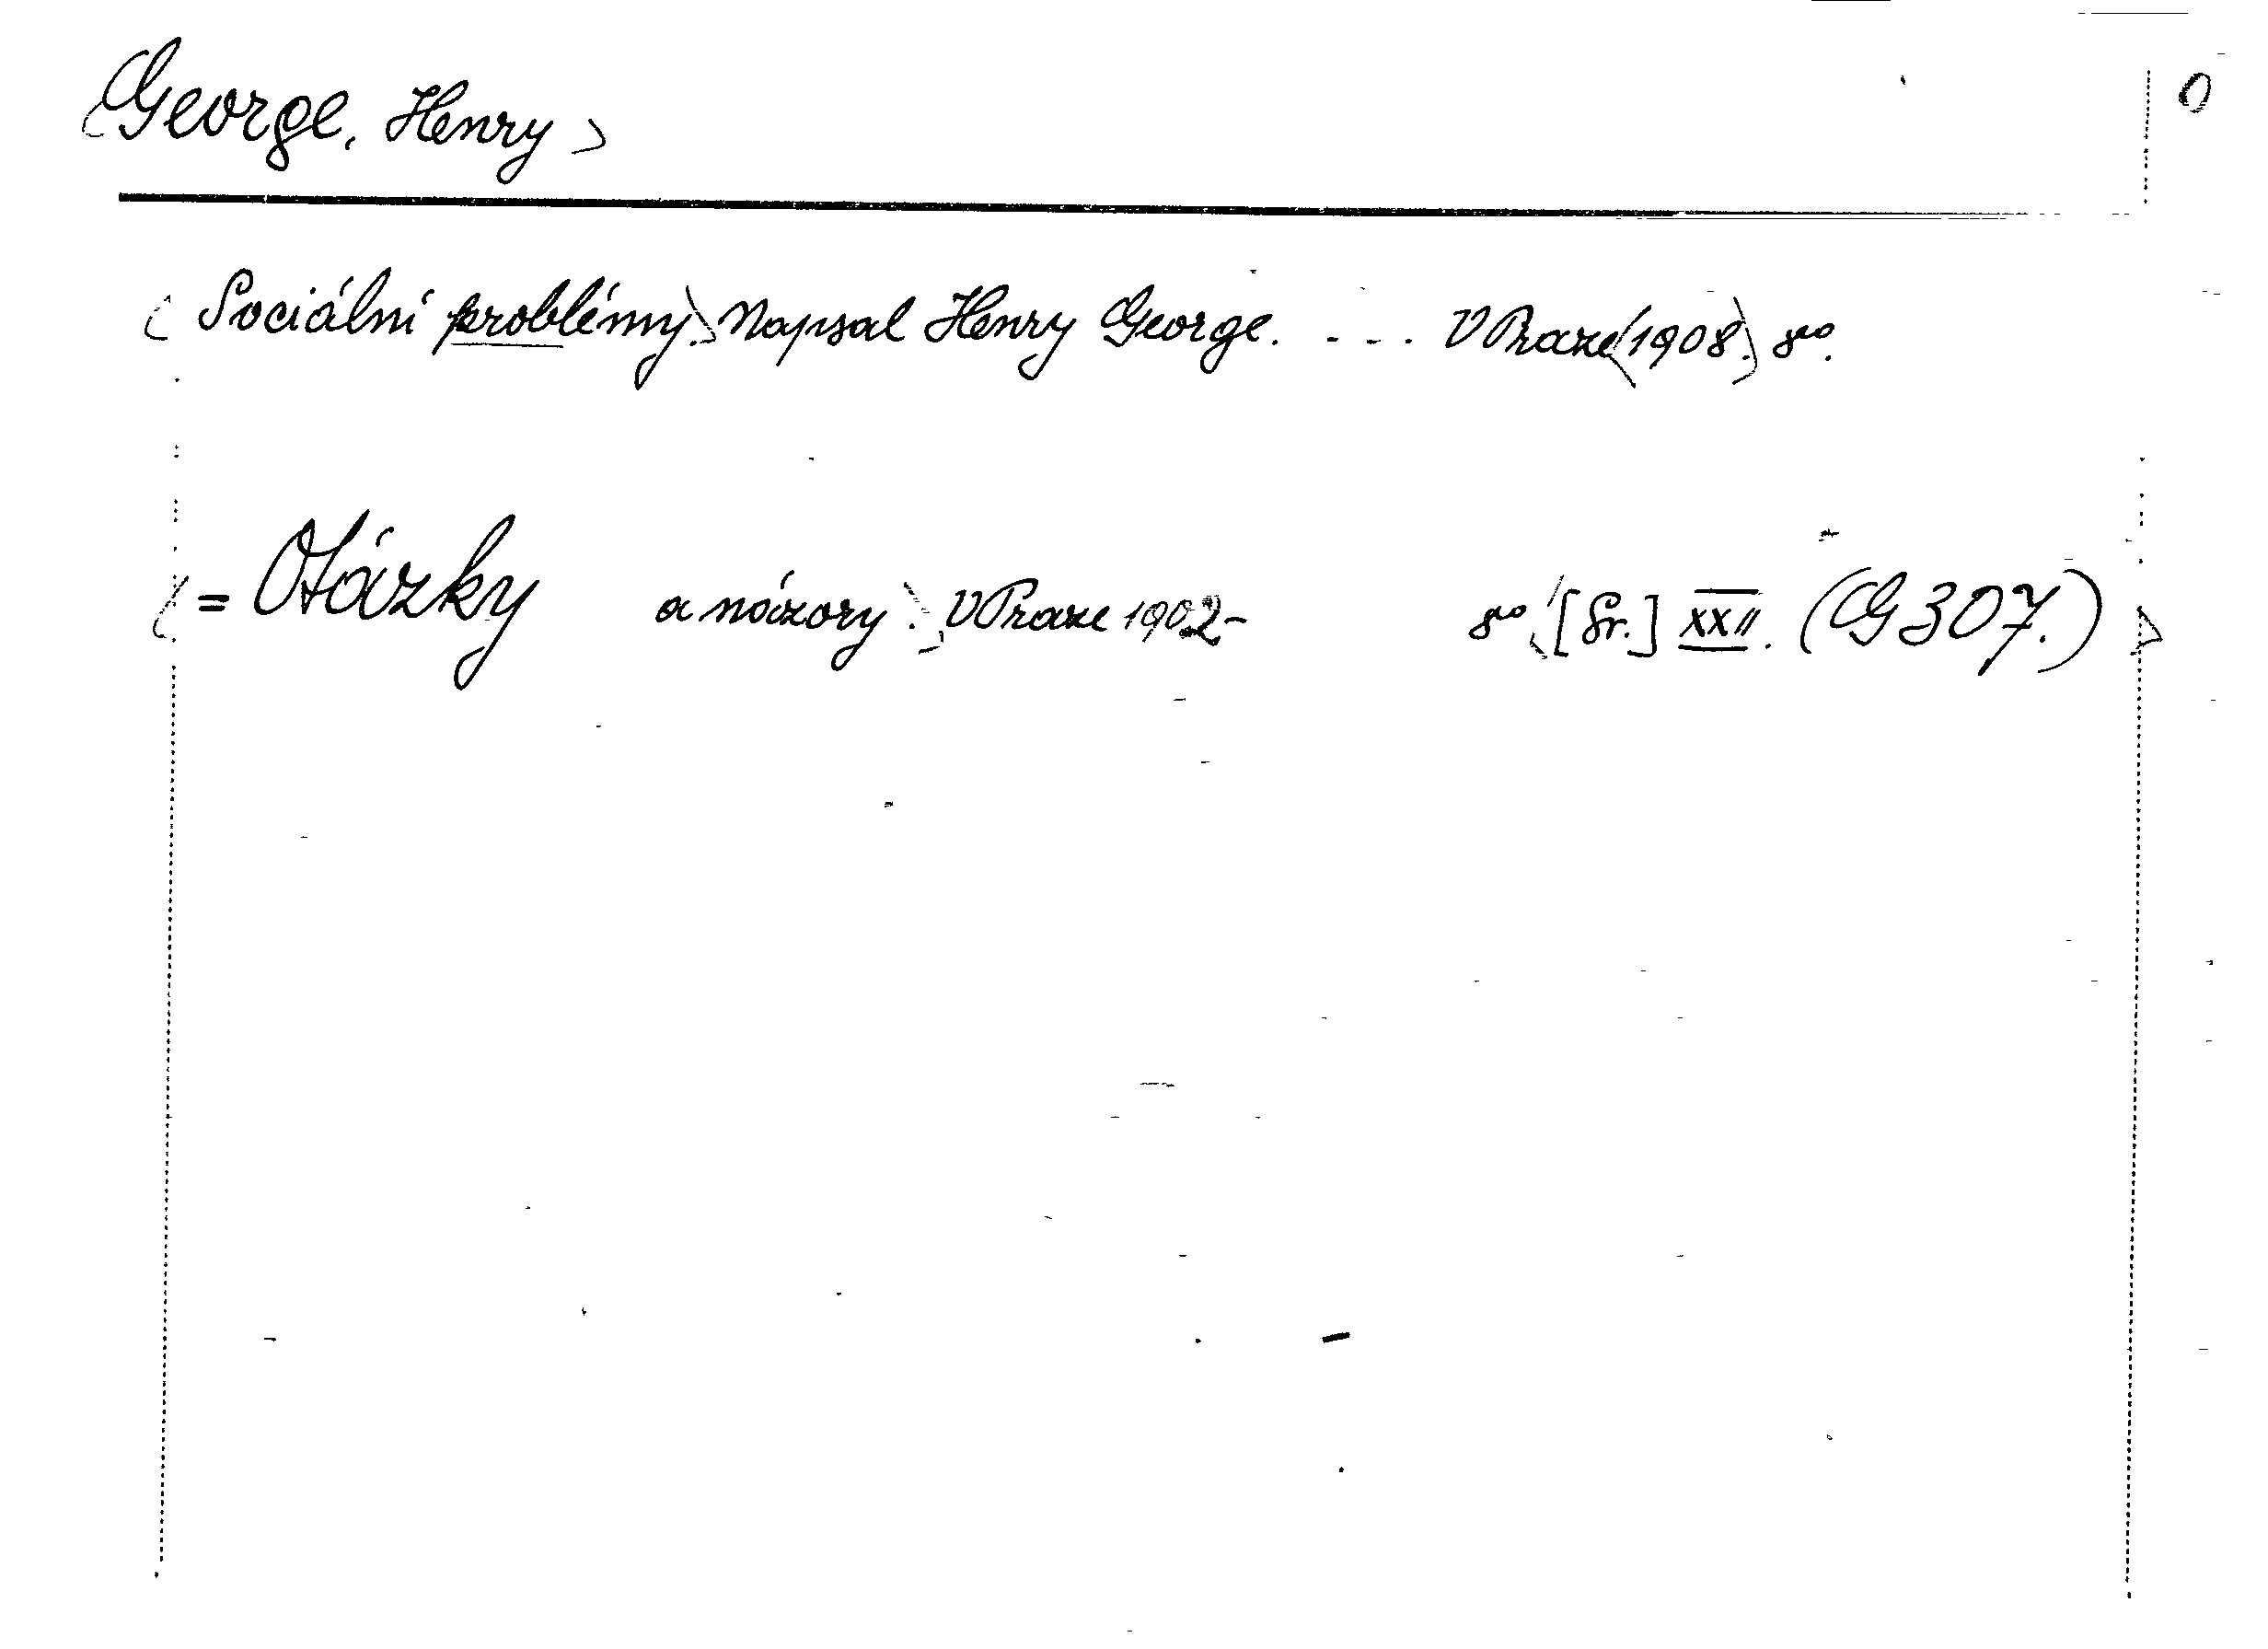 George, Henry 0
Sociální problémy. Napsal Henry George. . . . . V Praze 1908. 8vo.
= Otázky a názory. V Praze 1902- 8vo. [Sv.] XXII. (G 307.)